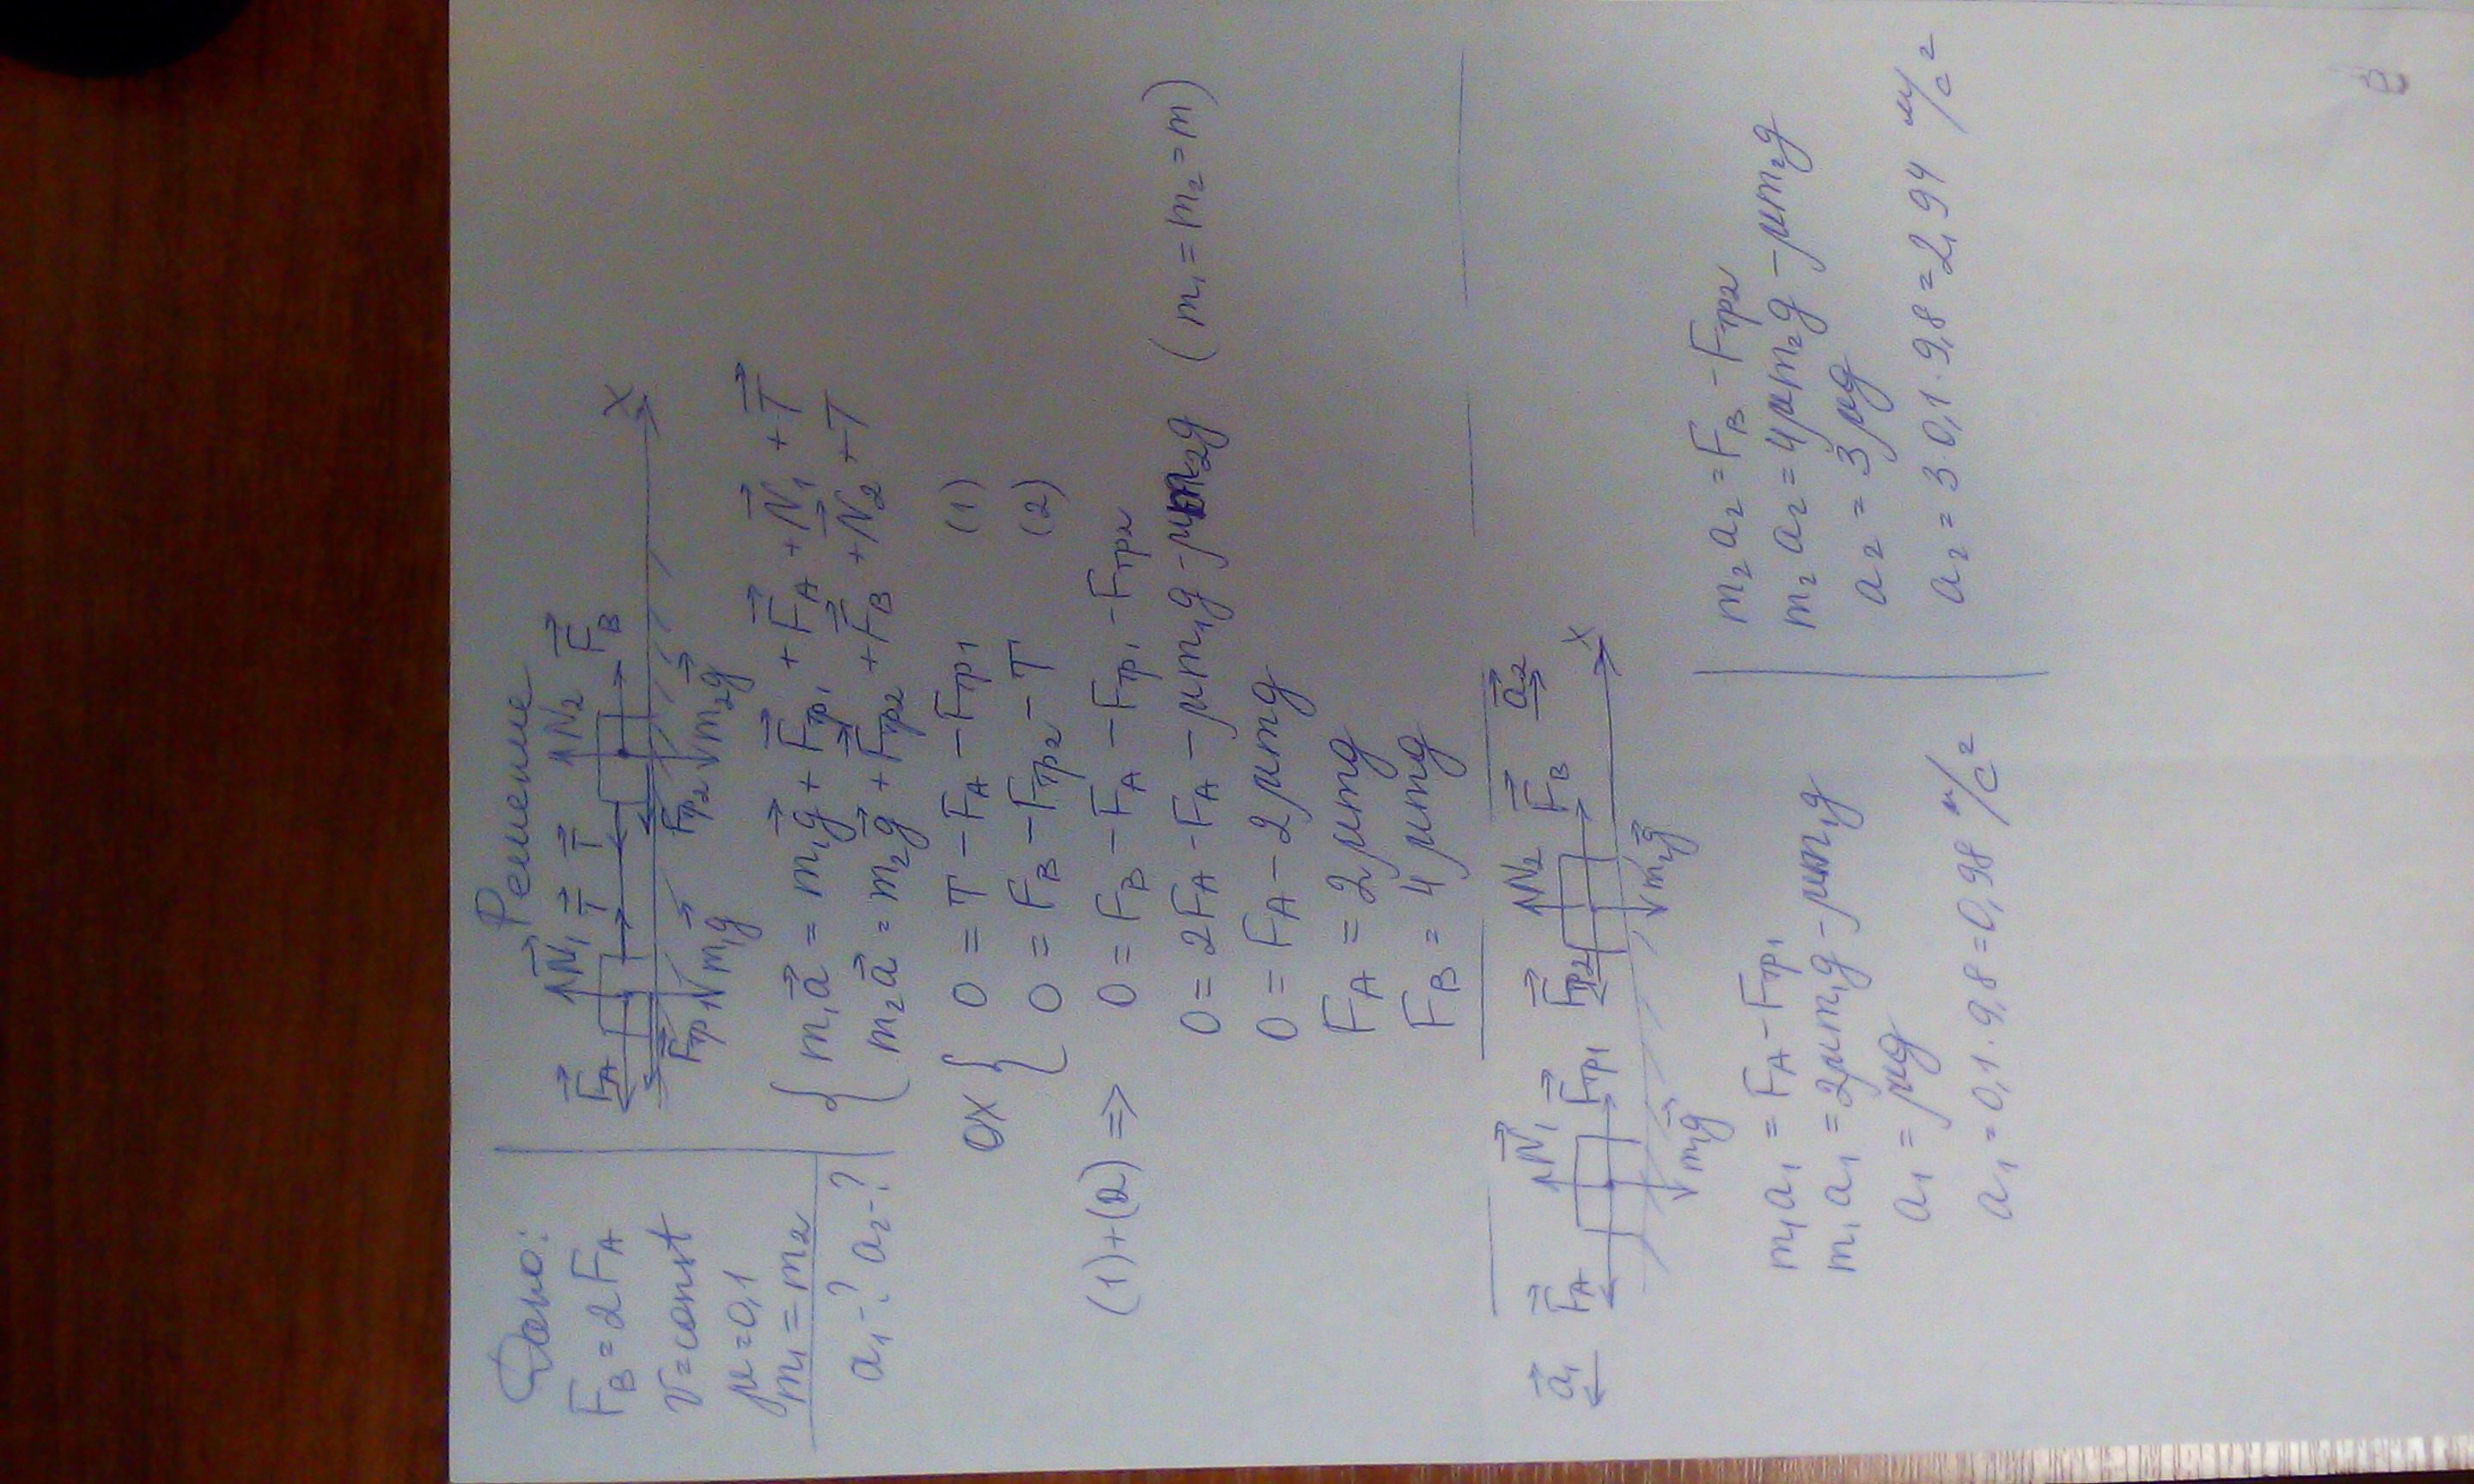 Дано:
F_B = 2F_A
v = const
μ = 0,1
m₁ = m₂
a₁-? a₂-?
Решение
F⃗_A N⃗₁ T⃗ T⃗ N₂ F⃗_B
F⃗тр₁ m₁g⃗ F⃗тр₂ m₂g⃗ X
{ m₁a⃗ = m₁g⃗ + F⃗тр₁ + F⃗_A + N⃗₁ + T⃗
m₂a⃗ = m₂g⃗ + F⃗тр₂ + F⃗_B + N⃗₂ + T
OX { 0 = T - F_A - Fтр1 (1)
0 = F_B - Fтр₂ - T (2)
(1)+(2) ⇒ 0 = F_B - F_A - Fтр₁ - Fтр₂
0 = 2F_A - F_A - μm₁g - μm₂g (m₁ = m₂ = m)
0 = F_A - 2μmg
F_A = 2μmg
F_B = 4μmg
a⃗₁ F⃗_A N⃗₁ F⃗тр1 F⃗тр2 N₂ F⃗_B a⃗₂
mg⃗ m₂g⃗ X
m₁a₁ = F_A - Fтр₁
m₁a₁ = 2μm₁g - μm₁g
a₁ = μg
a₁ = 0,1 · 9,8 = 0,98 м/с²
m₂a₂ = F_B - Fтр₂
m₂a₂ = 4μm₂g - μm₂g
a₂ = 3μg
a₂ = 3·0,1·9,8 = 2,94 м/с²